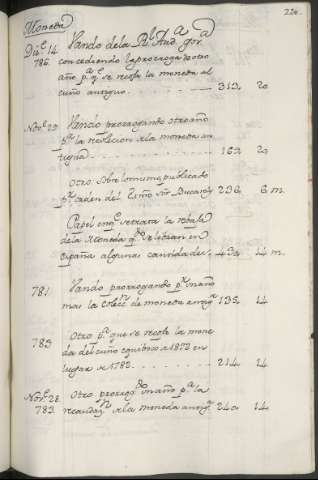 226.
Moneda
Dic.e 14. Vando de la R.l Aud.a gov.a
786. concediendo la prorroga de otro
año p.a q.e se recoja la moneda al
cuño antiguo 313 20
Nov.e 23. Vando prorrogando otro año
p.a la recoleccion de la moneda an
tigua 169 20
Otro sobre lo mismo publicado
p.r orden del Exmo Sor Bucareli 236 6 m.
Papel en q.e se trata la rebaja
de la Moneda q.e
España algunas cantidades 14 m.
781. Vando prorrogando p.r un año
mas la colecc.n de moneda antig.a 135 14
783. Otro p.a que se recoja la mone
da del cuño equiboco de 1873 en
lugar de 1783 214 14
Nov.e 28. Otro prorrog.do un año p.a la
783. recaudaz.n de la moneda antig.a 240 14